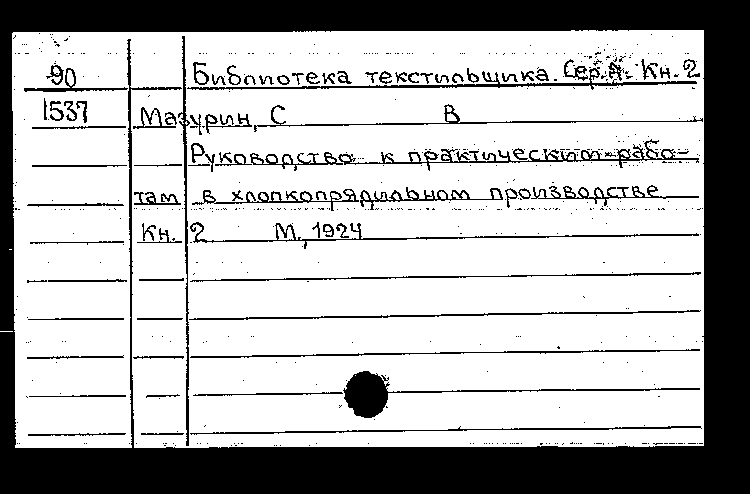 90 Библиотека текстильщика. Сер. А. Кн. 2
1537 Мазурин, С В
Руководство к практическим рабо-
там в хлопкопрядильном производстве
Кн. 2 М., 1924